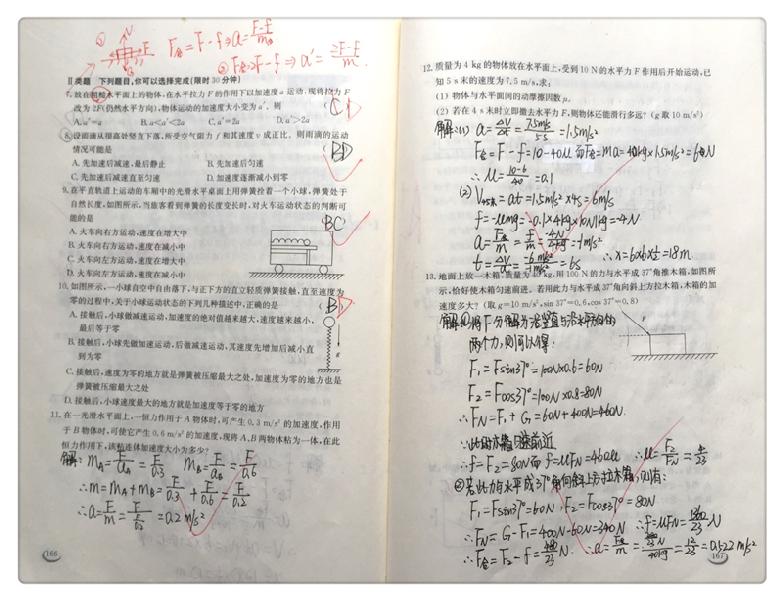 F合=F-f⇒a=(F-f)/m
F合=2F-f⇒a'=(2F-f)/m
Ⅱ类题 下列题目,你可以选择完成(限时30分钟)
7. 放在粗糙水平面上的物体,在水平拉力F的作用下以加速度a运动,现将拉力F
改为2F(仍然水平方向),物体运动的加速度大小变为a′,则
A. a′=a B. a<a′<2a C. a′=2a D. a′>2a
8. 设雨滴从很高处竖直下落,所受空气阻力f和其速度v成正比。则雨滴的运动
情况可能是 (BD
A. 先加速后减速,最后静止 B. 先加速后匀速
C. 先加速后减速直至匀速 D. 加速度逐渐减小到零
9. 在平直轨道上运动的车厢中的光滑水平桌面上用弹簧拴着一个小球,弹簧处于
自然长度,如图所示,当旅客看到弹簧的长度变长时,对火车运动状态的判断可
能的是 (BC
A. 火车向右方运动,速度在增大中
B. 火车向右方运动,速度在减小中
C. 火车向左方运动,速度在增大中
D. 火车向左方运动,速度在减小中
10. 如图所示,一小球自空中自由落下,与正下方的直立轻质弹簧接触,直至速度为
零的过程中,关于小球运动状态的下列几种描述中,正确的是 (BD
A. 接触后,小球做减速运动,加速度的绝对值越来越大,速度越来越小,
最后等于零
B. 接触后,小球先做加速运动,后做减速运动,其速度先增加后减小直
到为零
C. 接触后,速度为零的地方就是弹簧被压缩最大之处,加速度为零的地方也是
弹簧被压缩最大之处
D. 接触后,小球速度最大的地方就是加速度等于零的地方
g
11. 在一光滑水平面上,一恒力作用于A物体时,可产生0.3 m/s²的加速度,作用
于B物体时,可使它产生0.6 m/s²的加速度,现将A、B两物体粘为一体,在此
恒力作用下,该粘连体加速度大小为多少?
解: mA=F/aA=F/0.3 mB=F/aB=F/0.6
∴m=mA+mB=F/0.3+F/0.6=F/0.2
∴a=F/m=F/(F/0.2)=0.2m/s²
166
12. 质量为4 kg的物体放在水平面上,受到10 N的水平力F作用后开始运动,已
知5 s末的速度为7.5 m/s,求:
(1) 物体与水平面间的动摩擦因数μ。
(2) 若在4 s末时立即撤去水平力F,则物体还能滑行多远?(g取10 m/s²)
解:(1) a=ΔV/Δt=7.5m/s/5s=1.5m/s²
F合=F-f=10-40μ 而F合=ma=4kg×1.5m/s²=6N
∴μ=(10-6)/40=0.1
(2) V4s末=at=1.5m/s²×4s=6m/s
f=-μmg=-0.1×4kg×10N/kg=-4N
a=F合/m=f/m=-4N/4kg=-1m/s²
t=ΔV/a=-6m/s/-1m/s²=6s ∴x=6×6×½=18m
13. 地面上放一木箱,质量为40 kg,用100 N的力与水平成37°角推木箱,如图所
示,恰好使木箱匀速前进。若用此力与水平成37°角向斜上方拉木箱,木箱的加
速度多大?(取g=10 m/s²,sin 37°=0.6,cos 37°=0.8)
解:①将F分解为沿竖直与沿水平方向的
两个力,则可以得:
F₁=Fsin37°=100N×0.6=60N
F₂=Fcos37°=100N×0.8=80N
∴FN=F₁+G=60N+400N=460N.
∴此时木箱匀速前近
∴f=F₂=80N 而 f=μFN=460μ ∴μ=F₂/FN=4/23
②若此力与水平成37°角向斜上方拉木箱,则有:
F₁=Fsin37°=60N,F₂=Fcos37°=80N
∴FN=G-F₁=400N-60N=340N ∴f=μFN=1360/23 N
∴F合=F₂-f=480/23 N. ∴a=F合/m=(480/23 N)/40kg=12/23=0.522m/s²
167